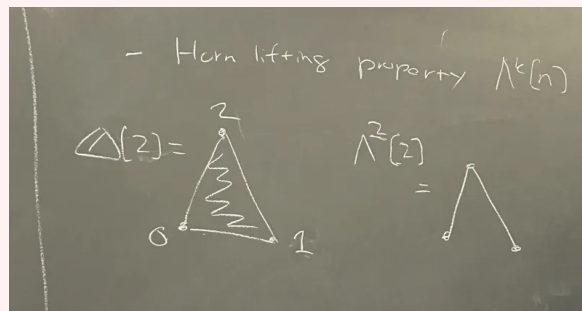 - Horn lifting property Λᵏ[n]
2
Δ[2] =
0
1
Λ²[2]
=